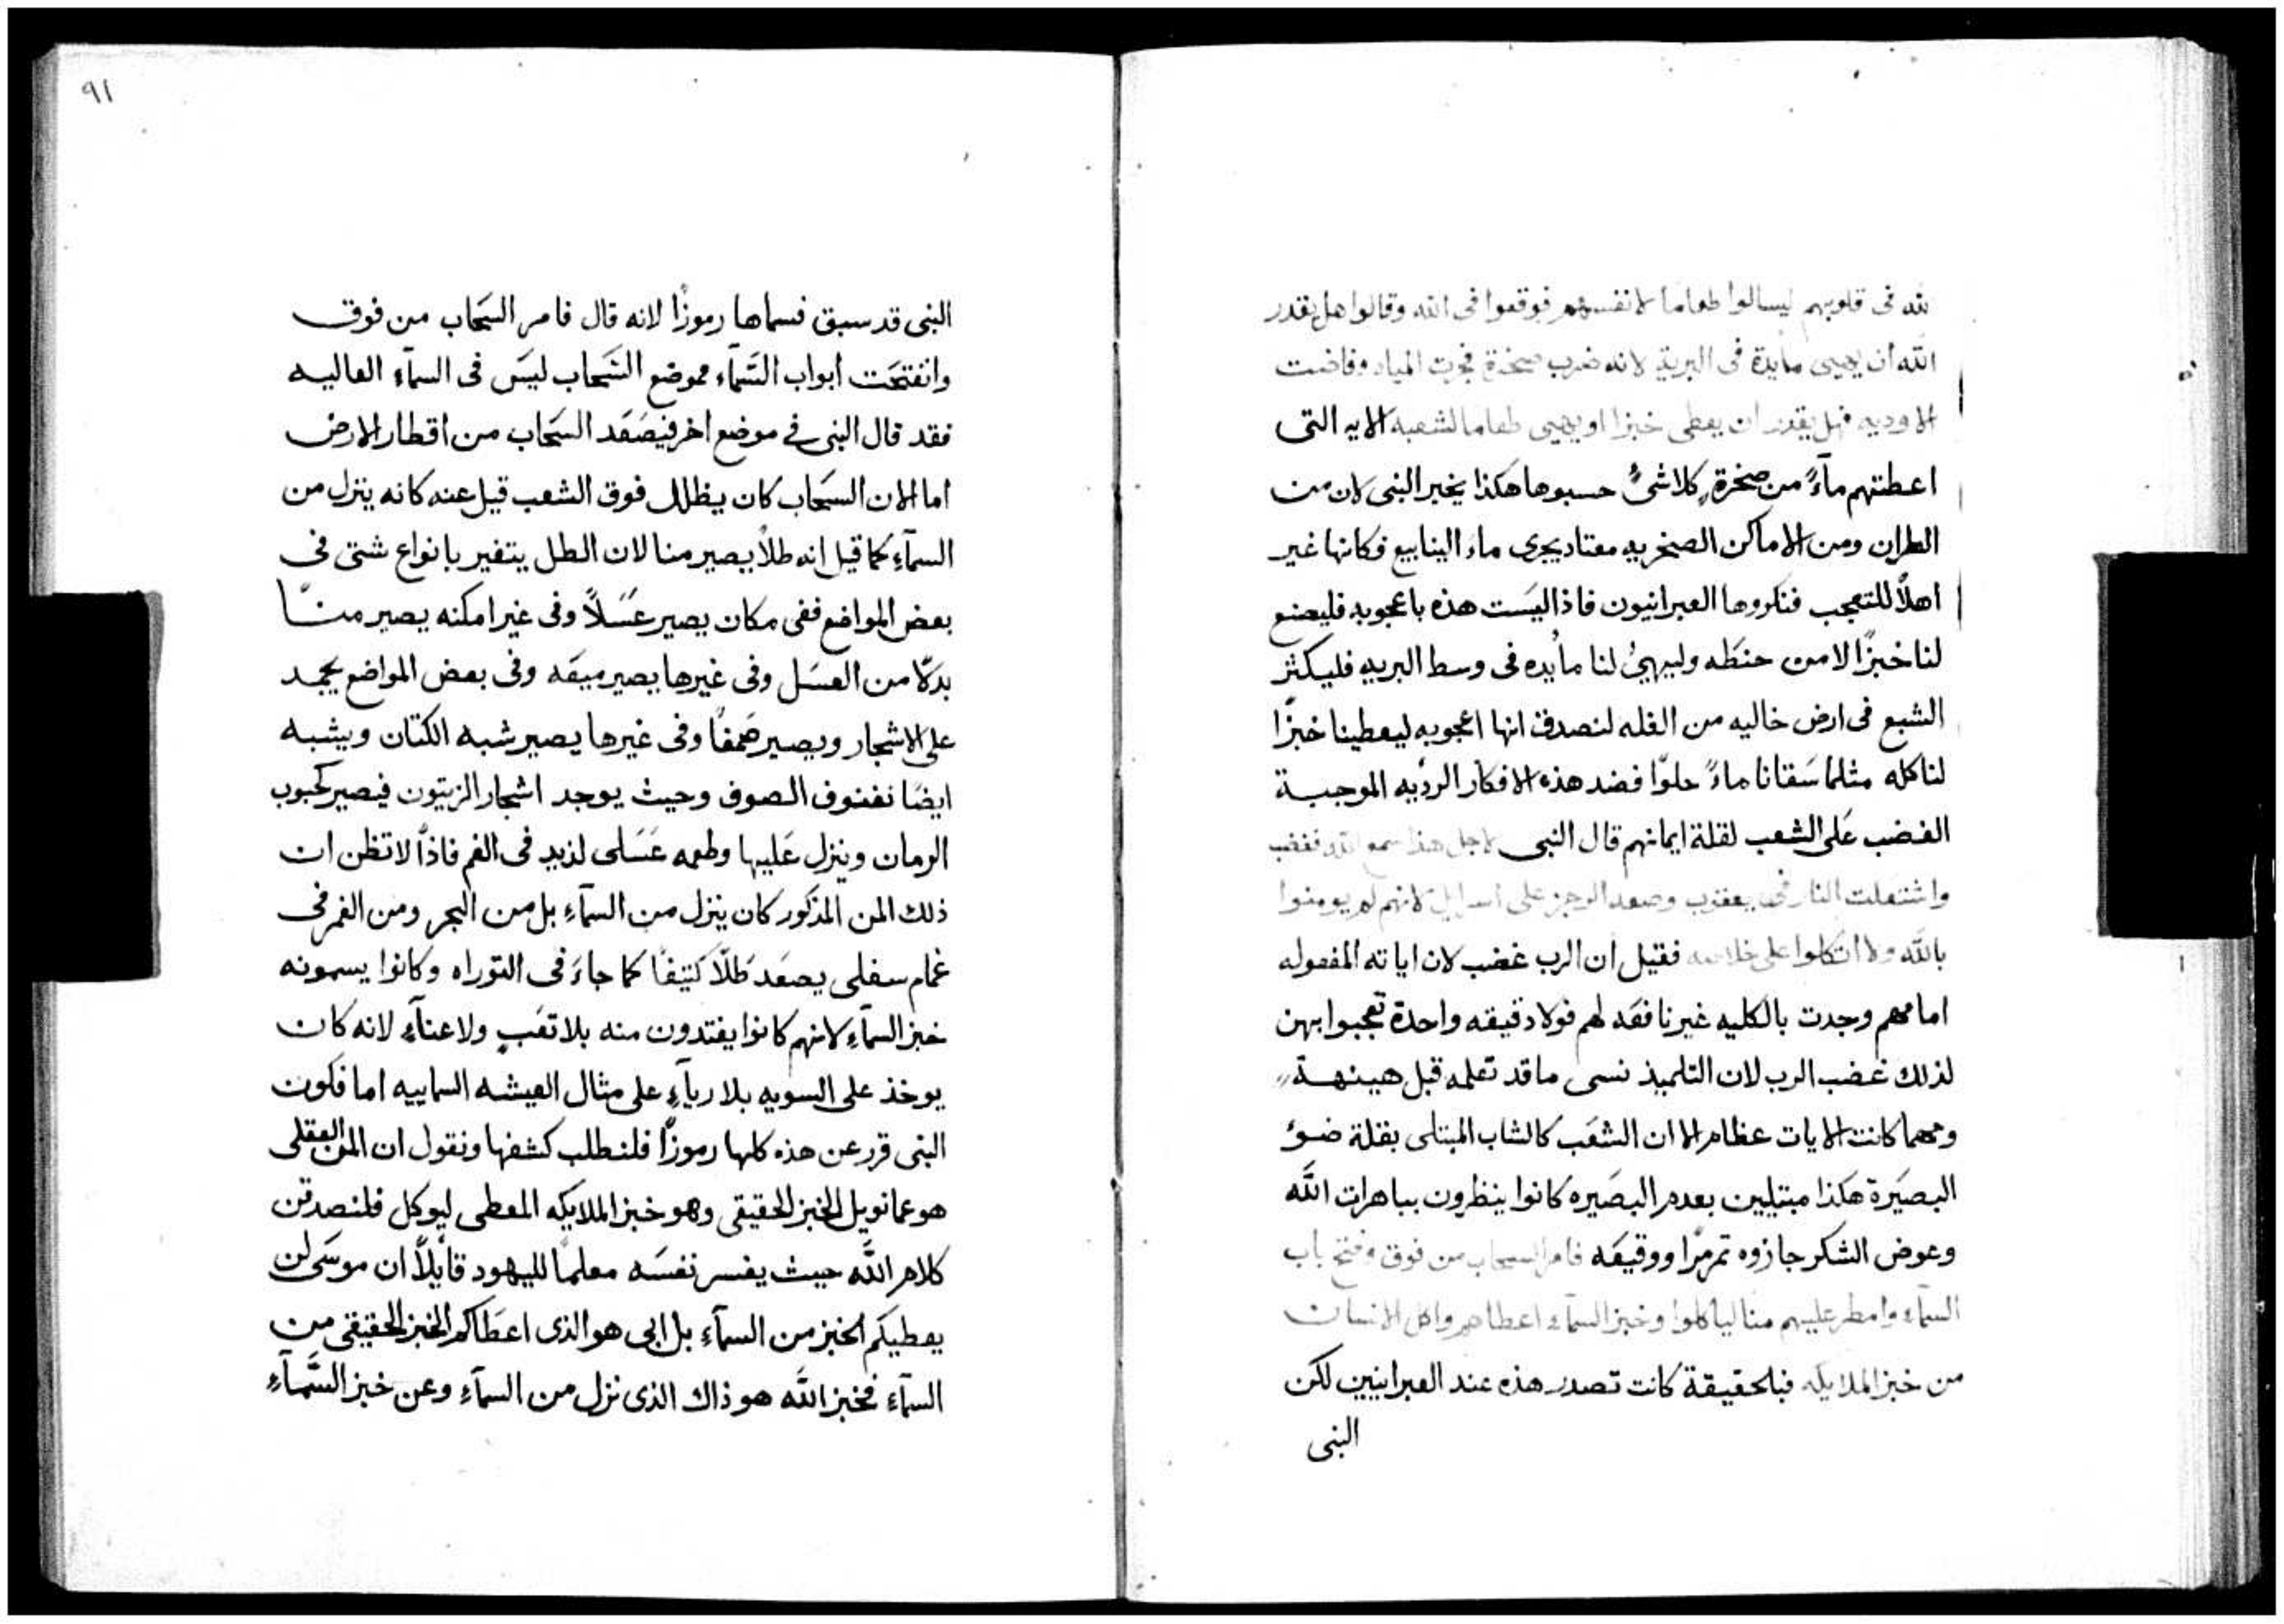 لله فى قلوبهم ليسالوا طعاما لانفسهم فوقعوا فى الله وقالوا هل يقدر
الله ان يهيى مايدة فى البرية لانه ضرب صخرة فجرت المياه وفاضت
الاوديه فهل يقدر ان يعطى خبزا او يهيى طعاما لشعبه الايه التى
اعطتهم مآءً من صخرةٍ كلاشىً حسبوها هكذا يخبر النبى لان من
الطران ومن الاماكن الصخريه معتاد يجرى ماء الينابيع فكانها غير
اهلاً للتعجب فنكروها العبرانيون فاذ اليست هذه باعجوبه فليصنع
لنا خبزًا لا من حنطه وليهيُ لنا مأيده فى وسط البريه فليكثر
الشبع فى ارض خاليه من الغله لنصدق انها اعجوبه ليعطينا خبزًا
لناكله مثلما سَقانا ماءً حلوًا فضد هذه الافكار الرديه الموجبة
الغضب عَلى الشعب لقلة ايمانهم قال النبى لاجل هذا سمع الله فغضب
واشتعلت النار فى يعقوب وصعد الرجز على اسرايل لانهم لم يومنوا
بالله ولا اتكلوا على خلاصه فقيل ان الرب غضب لان اياته المفعوله
امامهم وجدت بالكليه غير نافعَه لهم فولا دقيقه واحدة تعجبوا بهن
لذلك غضب الرب لان التلميذ نسى ما قد تعلمه قبل هينهة
ومهما كانت الايات عظام الا ان الشعَب كالشاب المبتلى بقلة ضوُ
البصَيرة هكذا مبتليين بعدم البصَيره كانوا ينظرون بباهرات اللَّه
وعوض الشكر جازوه تمرمرًا ووقيعَه فامر السحاب من فوق وفتح باب
السمآء وامطر عليهم منا لياكلوا وخبز السمآء اعطاهم واكل الانسان
من خبز الملايكه فبالحقيقة كانت تصدر هذه عند العبرانيين لكن
النبى
٩١
النبى قد سبق فسماها رموزًا لانه قال فامر السَحاب من فوق
وانفتحَت أبواب السَّمآء فموضع السَّحاب ليسَ فى السمآء العاليه
فقد قال النبى فى موضع اخر فيصَعَد السَحاب من اقطار الارض
اما الان السَحاب كان يظلل فوق الشعب قيل عنه كانه ينزل من
السمآءِ كما قيل انه طلاً يصير منا لان الطل يتغير بانواع شتى فى
بعض المواضع ففى مكان يصير عَسَلاً وفى غير امكنه يصير منـًّا
بدلاً من العسَل وفى غيرها يصير ميعَه وفى بعض المواضع يجمد
على الاشجار ويصير صَمغًا وفى غيرها يصير شبه الكتان ويشبه
ايضًا نفنوف الصوف وحيث يوجد اشجار الزيتون فيصير كحبوب
الرمان وينزل عَليها وطعمه عَسَلى لذيد فى الفم فاذًا لا تظن ان
ذلك المن المذكور كان ينزل من السمآءِ بل من البحر ومن الغمر فى
غمام سفلى يصعَد طَلّا كتيفًا كما جاءَ فى التوراه وكانوا يسمونه
خبز السمآءِ لانهم كانوا يغتدون منه بلا تعَبٍ ولا عنآءٍ لانه كان
يوخذ على السويه بلا ريآءٍ على مثال العيشه السماييه اما فكون
النبى قرر عن هذه كلها رموزًا فلنطلب كشفها ونقول ان المن العقلى
هو عمانويل الخبز الحقيقى وهو خبز الملايكه المعطى ليوكل فلنصدقن
كلام اللَّه حيث يفسر نفسَه معلمًا لليهود قايلاً ان موسَى لن
يعطيكم الخبز من السمآء بل ابى هو الذى اعطَاكم الخبز الحقيقى من
السمآء فخبز اللَّه هو ذاك الذى نزل من السمآءِ وعن خبز السَّمآءِ